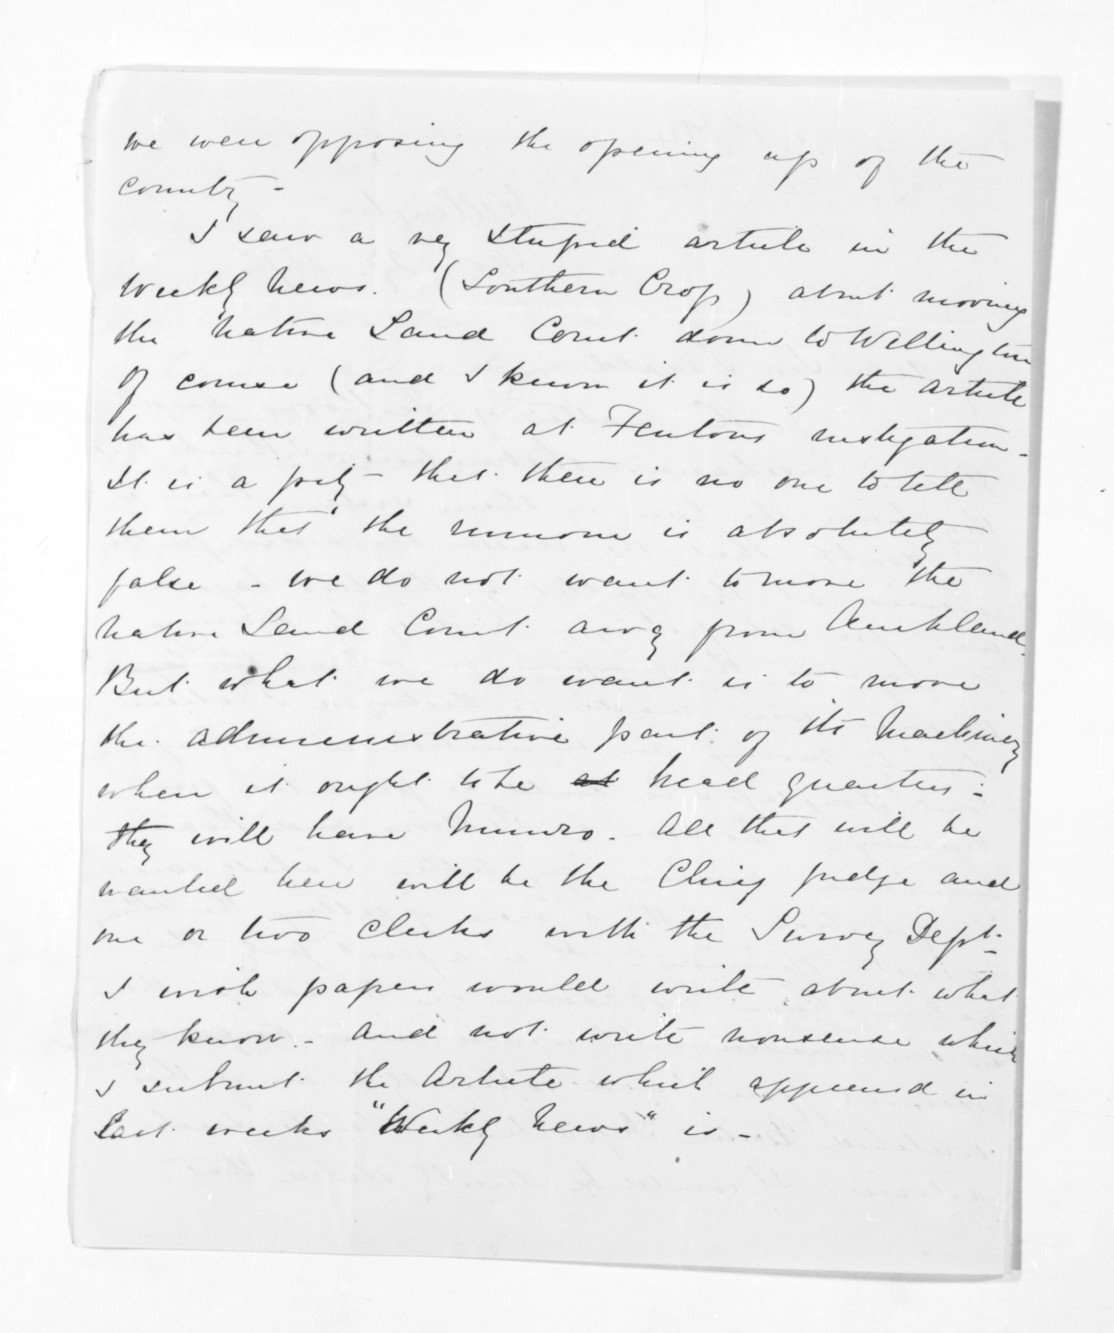 we were opposing the opening up of the
country -
I saw a very stupid article in the
Weekly News. (Southern Cross) about moving
the Native Land Court down to Wellington
Of course (and I know it is so) the article
has been written at Fentons instigation -
It is a pity - that there is no one to tell
them that the rumour is absolutely
false - we do not want to move the
Native Land Court away from Auckland.
But what we do want is to move
the administrative part of its Machinery
where it ought to be at head quarters -
they will have Munro. All that will be
wanted here will be the Chief Judge and
one or two clerks with the Survey Dept -
I wish papers would write about what
they know - and not write nonsense which
I submit the Article which appeared in
Last weeks "Weekly News" is -